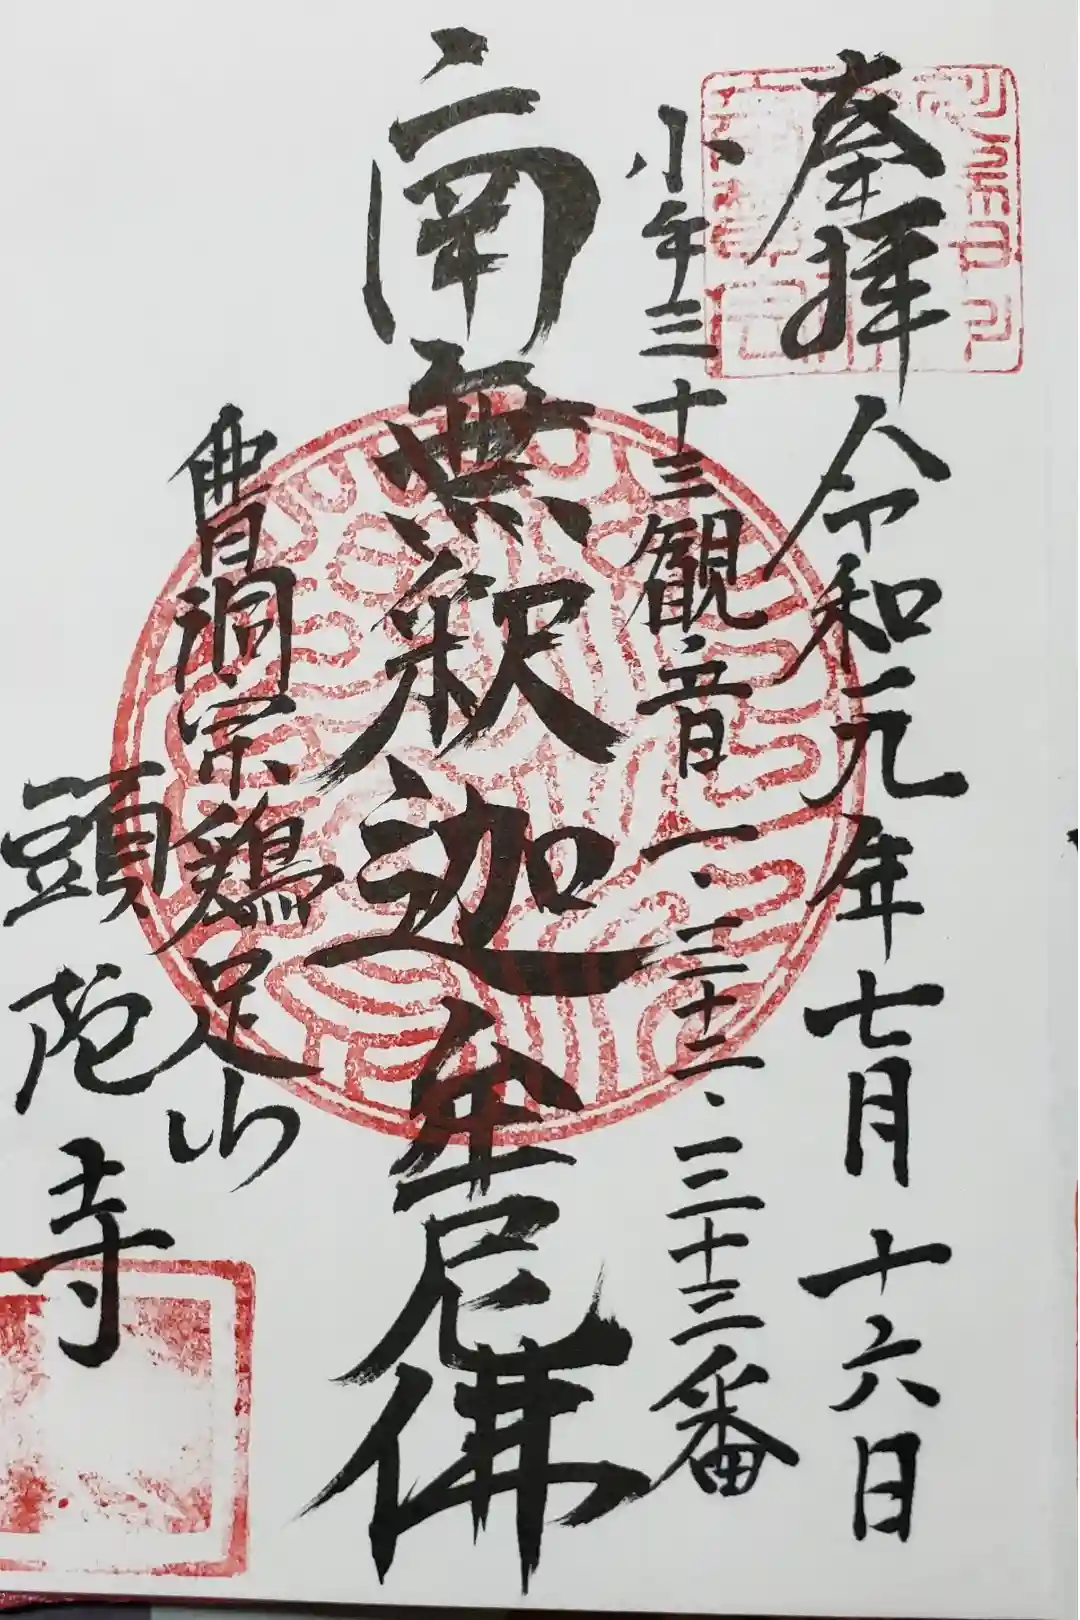 奉拝
令和元年七月十六日
小年三十三観音一・三十二・三十三番
南無釈迦牟尼佛
曹洞宗鶏足山
頭陀寺